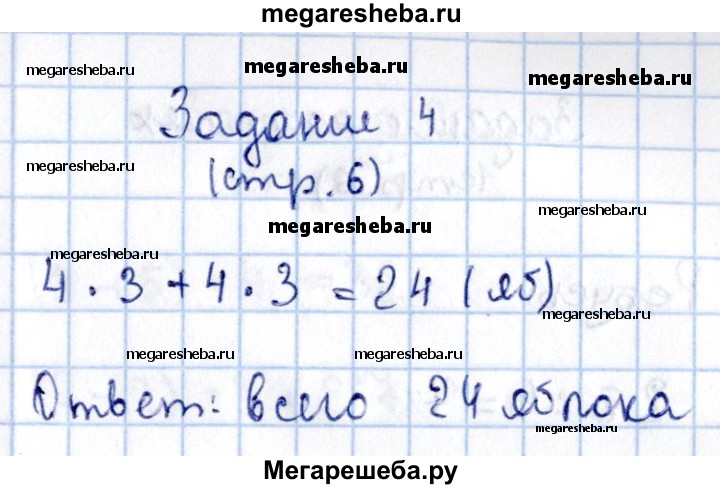 megaresheba.ru
megaresheba.ru megaresheba.ru megaresheba.ru
Задание 4
megaresheba.ru
(стр. 6)
megaresheba.ru
megaresheba.ru
megaresheba.ru
4 · 3 + 4 · 3 = 24 (яб)
megaresheba.ru
megaresheba.ru megaresheba.ru
Ответ: всего 24 яблока
megaresheba.ru
Мегарешеба.ру